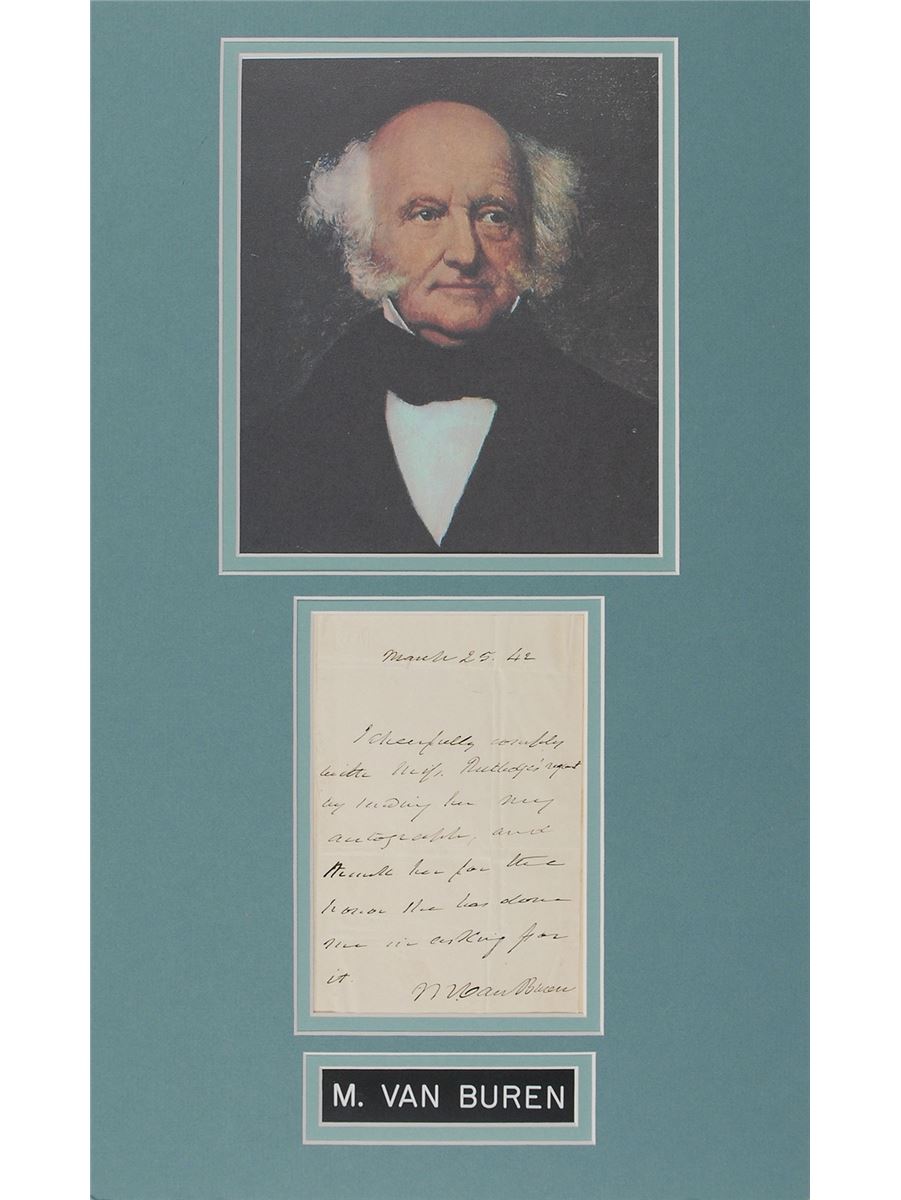 March 25. 42
I cheerfully comply
with Miss Rutledge's request
by sending her my
autograph, and
thank her for the
honor she has done
me in asking for
it.
M Van Buren
M. VAN BUREN